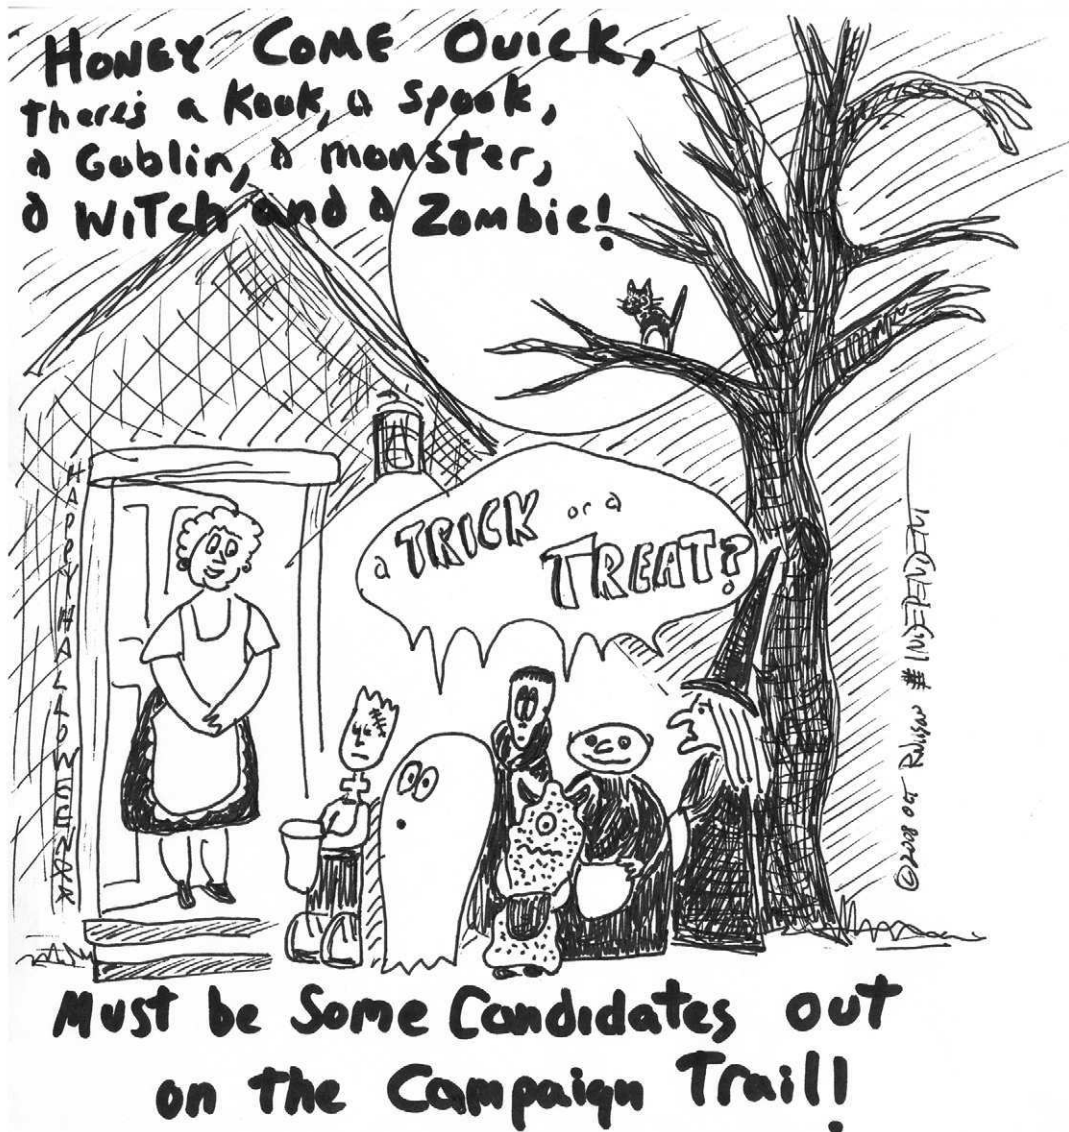 HONEY COME QUICK,
there's a Kook, a Spook,
a Goblin, a monster,
a WITCH and a Zombie!
a TRICK or a
TREAT?
HAPPY HALLOWEEN
©2008 OCT
# INDEPENDENT
Must be Some Candidates out
on the Campaign Trail!